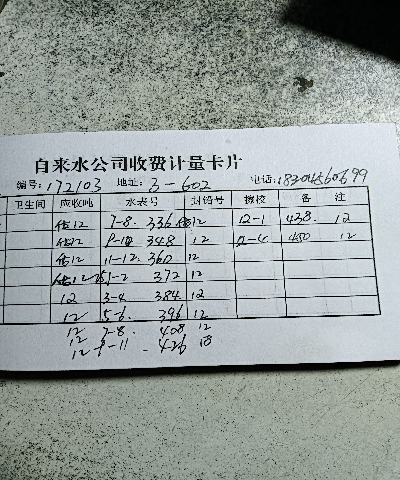 自来水公司收费计量卡片
编号: 172103 地址: 3-602 电话:
卫生间 应收吨 水表号 封铅号 换校 备 注
估12 7-8. 336 12 12-1 438. 12
估12 9-10 348 12 450 12
估12 11-12. 360 12
1-2 372 12
12 3-4 384 12
12 5-6. 396 12
12 7-8. 408 12
12 9-11 426 18